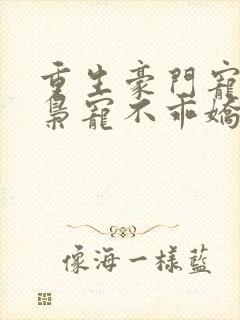 重生豪門寵
梟寵不乖嬌
像海一樣藍